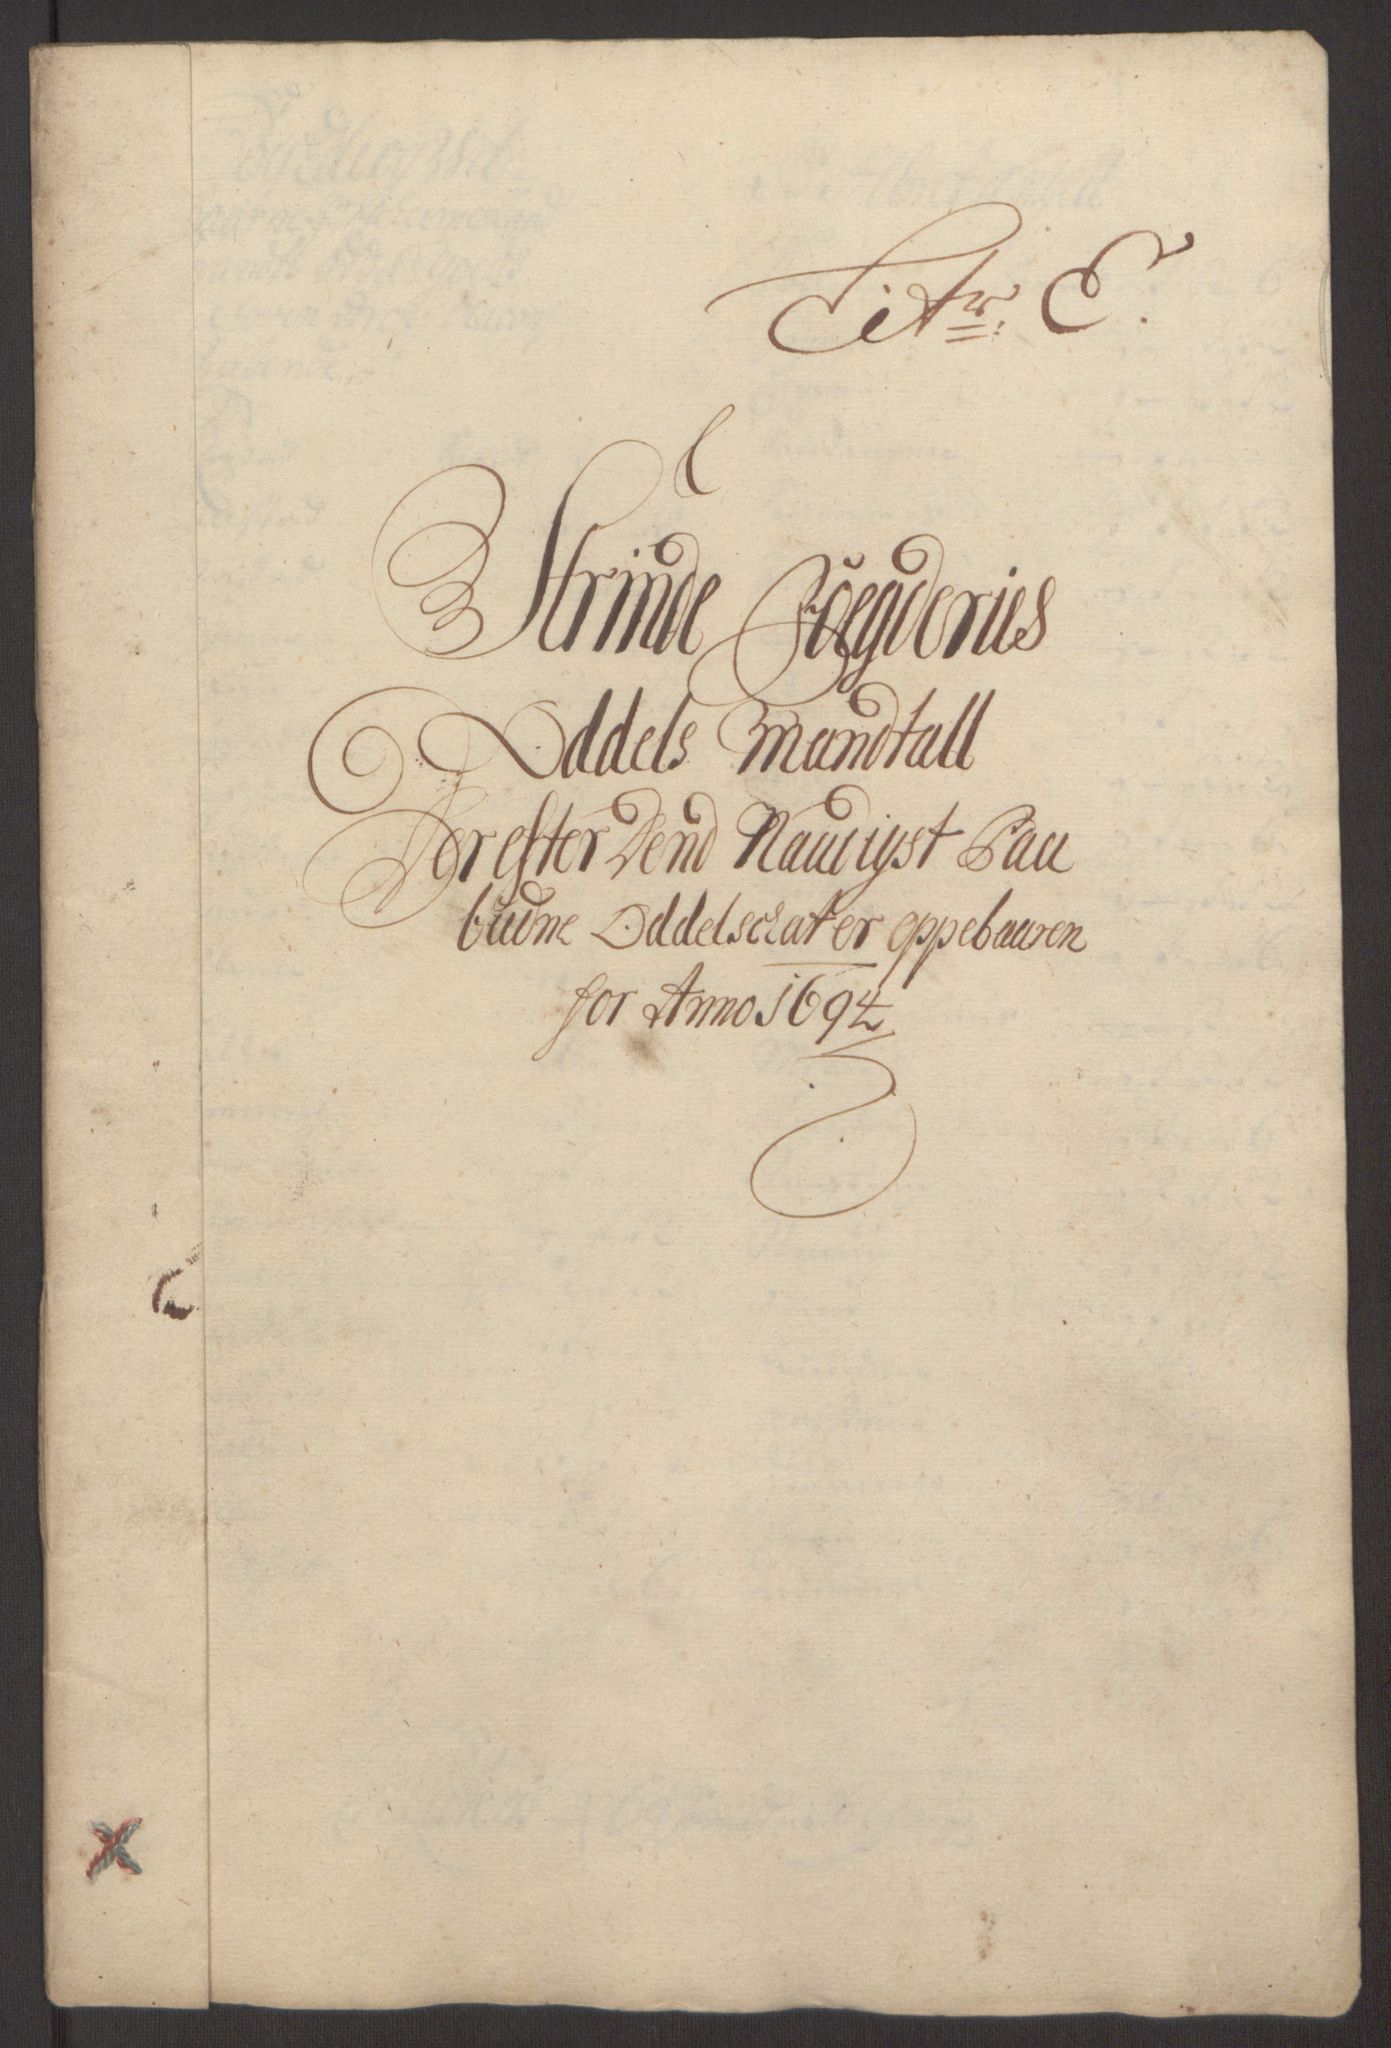 Litr: E.
Strinde Fögderies
Oddels Mandtall
Derefter Dend Naadigst Paa
budne Oddelschat er oppebaaren
for Anno 1694